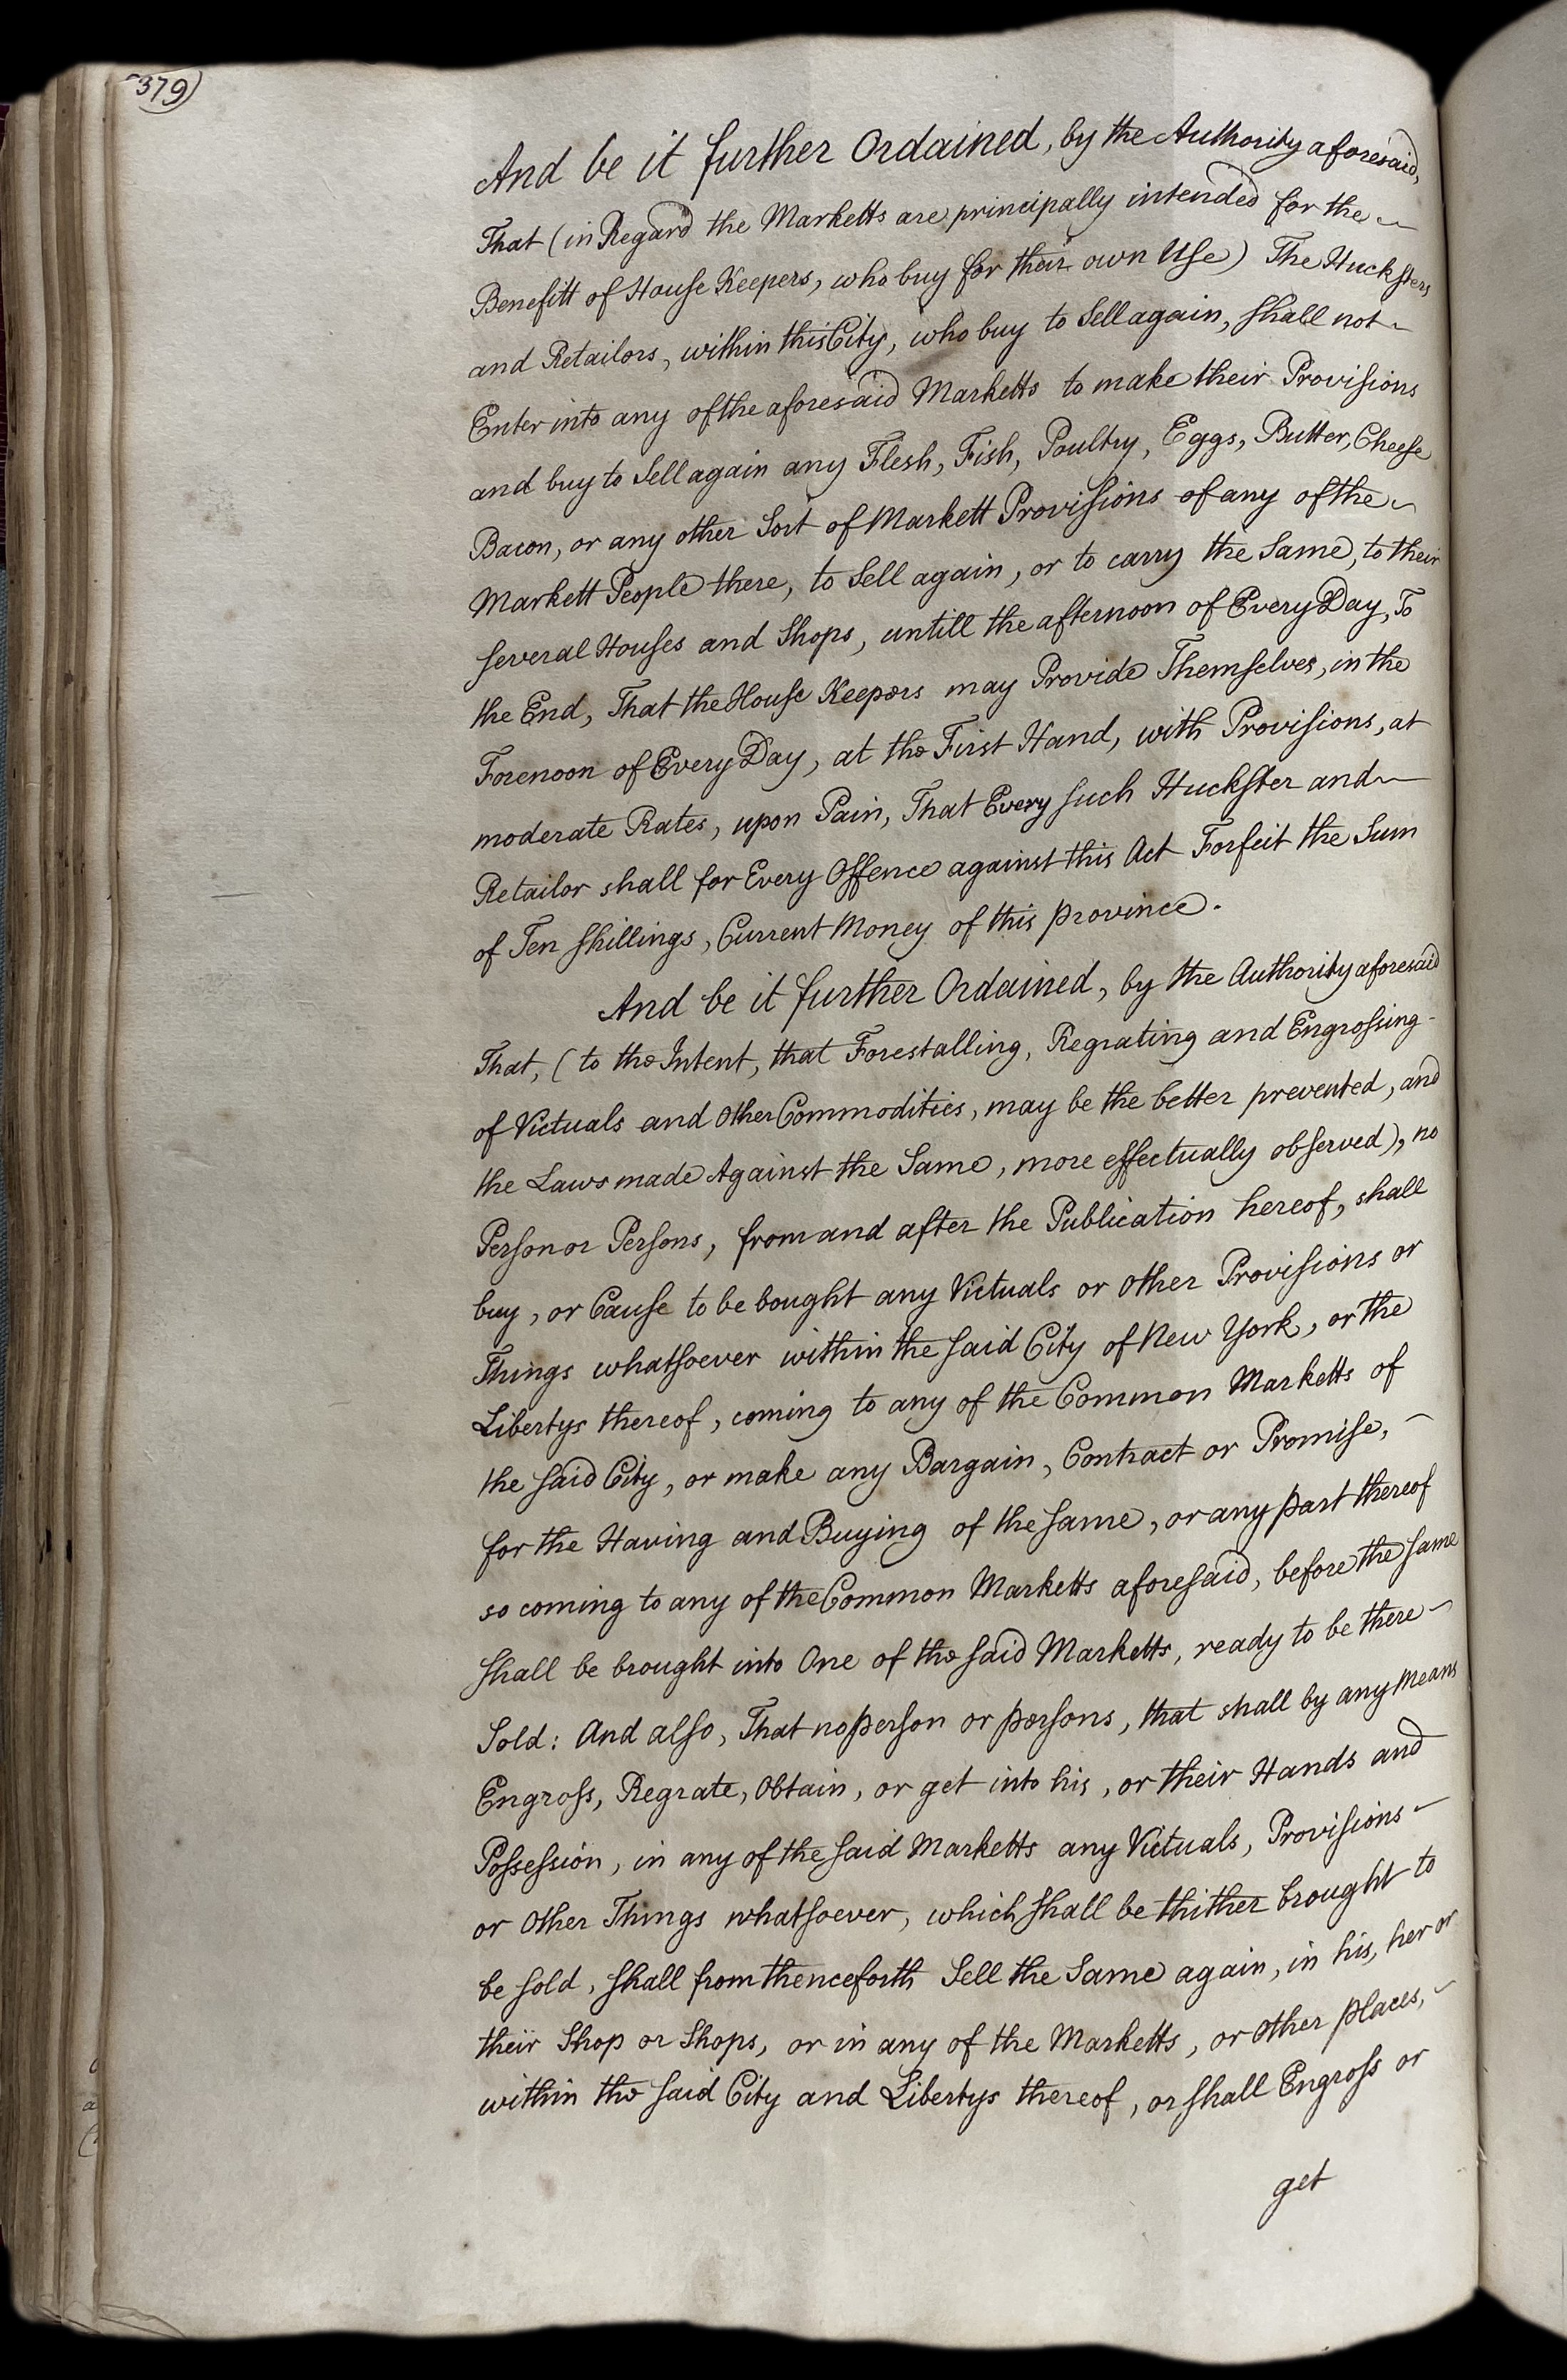 379)
And be it further Ordained, by the Authority aforesaid,
That (in Regard the Marketts are principally intended for the
Benefitt of House Keepers, who buy for their own Use) The Hucksters
and Retailors, within this City, who buy to Sell again, shall not
Enter into any of the aforesaid Marketts to make their Provisions
and buy to Sell again any Flesh, Fish, Poultry, Eggs, Butter, Cheese
Bacon, or any other Sort of Markett Provisions of any of the
Markett People there, to Sell again, or to carry the Same, to their
several Houses and Shops, untill the afternoon of Every Day, To
the End, That the House Keepers may Provide Themselves, in the
Forenoon of Every Day, at the First Hand, with Provisions, at
moderate Rates, upon Pain, That Every such Huckster and
Retailor shall for Every Offence against this Act Forfeit the Sum
of Ten Shillings, Current Money of this province.
And be it further Ordained, by the Authority aforesaid
That, (to the Intent, that Forestalling, Regrating and Engrossing
of Victuals and Other Commodities, may be the better prevented, and
the Laws made Against the Same, more effectually observed), no
Person or Persons, from and after the Publication hereof, shall
buy, or Cause to be bought any Victuals or other Provisions or
Things whatsoever within the said City of New York, or the
Libertys thereof, coming to any of the Common Marketts of
the said City, or make any Bargain, Contract or Promise,
for the Having and Buying of the same, or any part thereof
so coming to any of the Common Marketts aforesaid, before the same
shall be brought into One of the said Marketts, ready to be there
Sold: And also, That no person or persons, that shall by any means
Engross, Regrate, Obtain, or get into his, or their Hands and
Possession, in any of the said Marketts any Victuals, Provisions
or Other Things whatsoever, which shall be thither brought to
be sold, shall from thenceforth Sell the Same again, in his, her or
their Shop or Shops, or in any of the Marketts, or other places,
within the said City and Libertys thereof, or shall Engross or
get